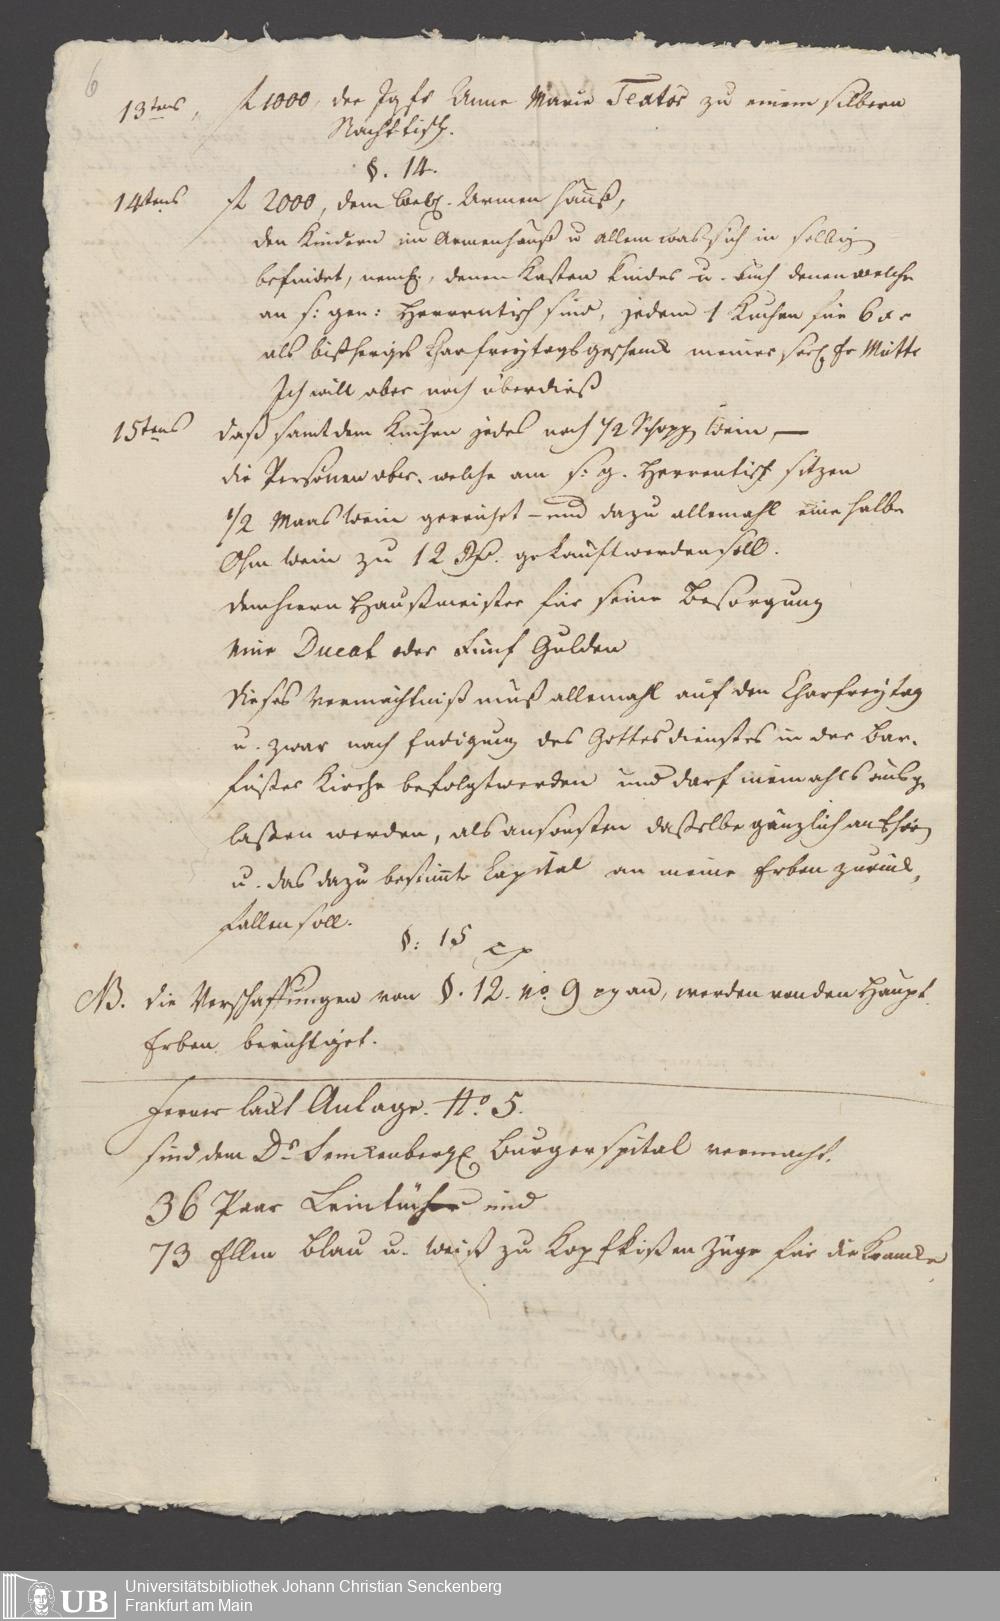 6
13tens, fl 1000, der Jgfr Anne Marie Textor zu einem silbern
Nachttisch.
§. 14.
14tens fl 2000, dem Armen Hauß,
den Kindern im Armenhauß u allem was sich in selbig
befindet, neml., denen Kasten Kinder u. auch denen welche
an s: gen: Herrentisch sind, jedem 1 Kuchen für 6 xr
als bißheriges Charfreytagsgeschenk meiner seel. Fr Mutter
Ich will aber noch überdieß
15tens daß samt dem Kuchen jedes noch 1/2 Schopp Wein, —
die Personen aber, welche am s: g. Herrentisch sitzen
1/2 Maas Wein gereichet – und dazu allemahl eine halbe
Ohm Wein zu 12 gekauft werden soll.
dem Herrn Haußmeister für seine Besorgung
eine Ducat oder Fünf Gulden
Dieses Vermächtniß muß allemahl auf den Charfreytag
u. zwar nach Endigung des Gottesdienstes in der Bar-
füsser Kirche befolgt werden und darf niemahls ausge
lassen werden, als ansonsten dasselbe gänzlich aufhören
u. das dazu bestimte Capital an meine Erben zurück,
fallen soll.
§: 15
NB. die Verschaffungen von §. 12. No. 9 an, werden von den Haupt
Erben berichtiget.
Ferner laut Anlage. No. 5.
sind dem Dr Senckenberg. Burgerspital vermacht.
36 Paar Leintücher und
73 Ellen blau u. weiß zu Kopfkißen Züge für die Kranke
UB
Universitätsbibliothek Johann Christian Senckenberg
Frankfurt am Main